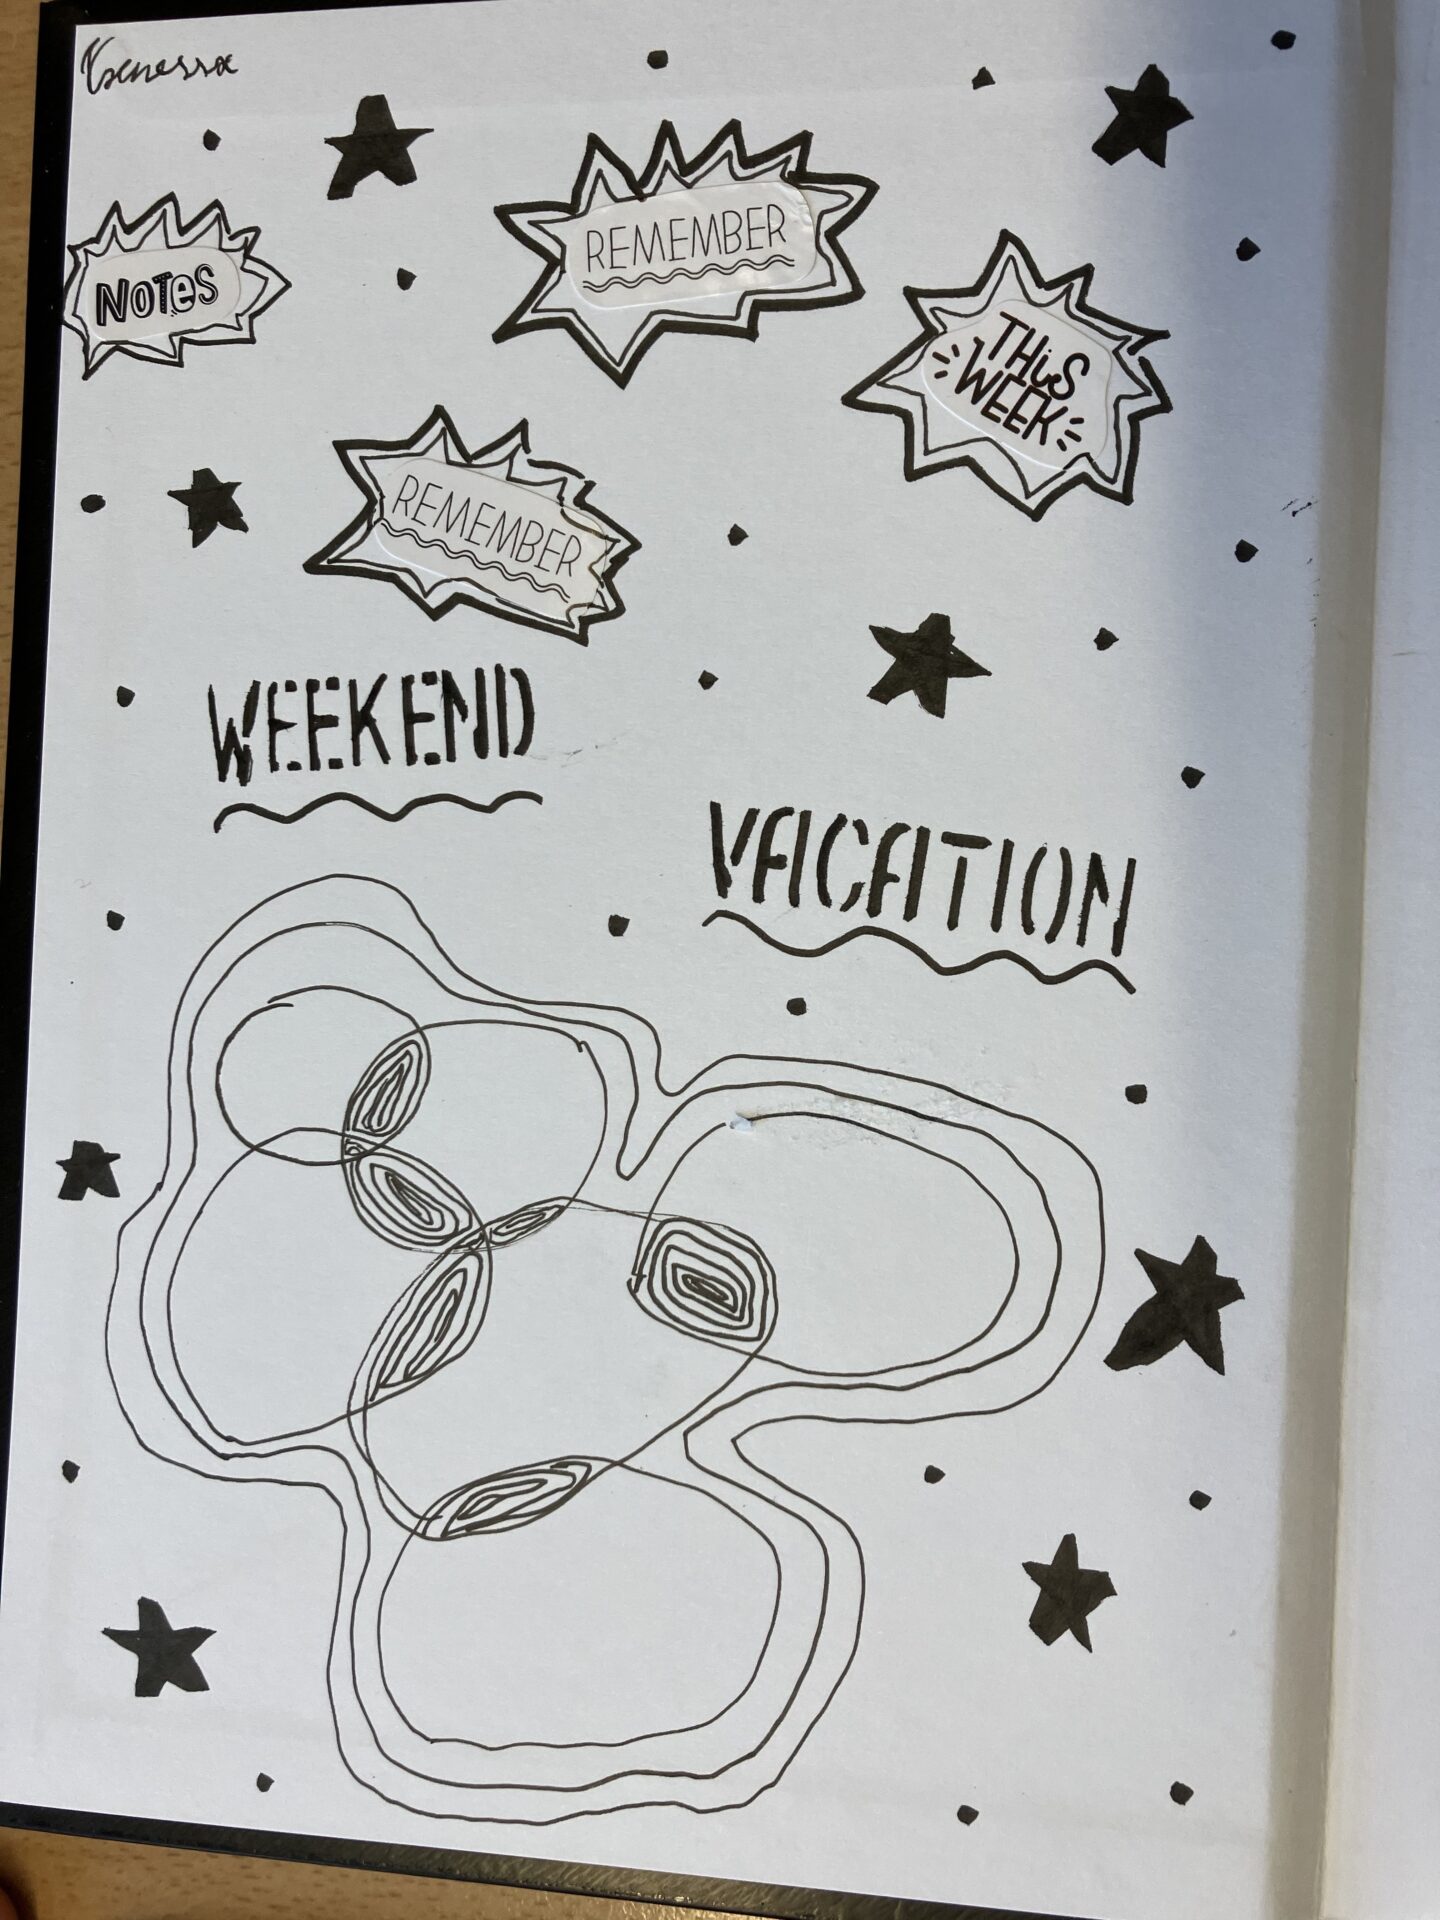 NOTES
REMEMBER
THIS
WEEK
REMEMBER
WEEKEND
VACATION